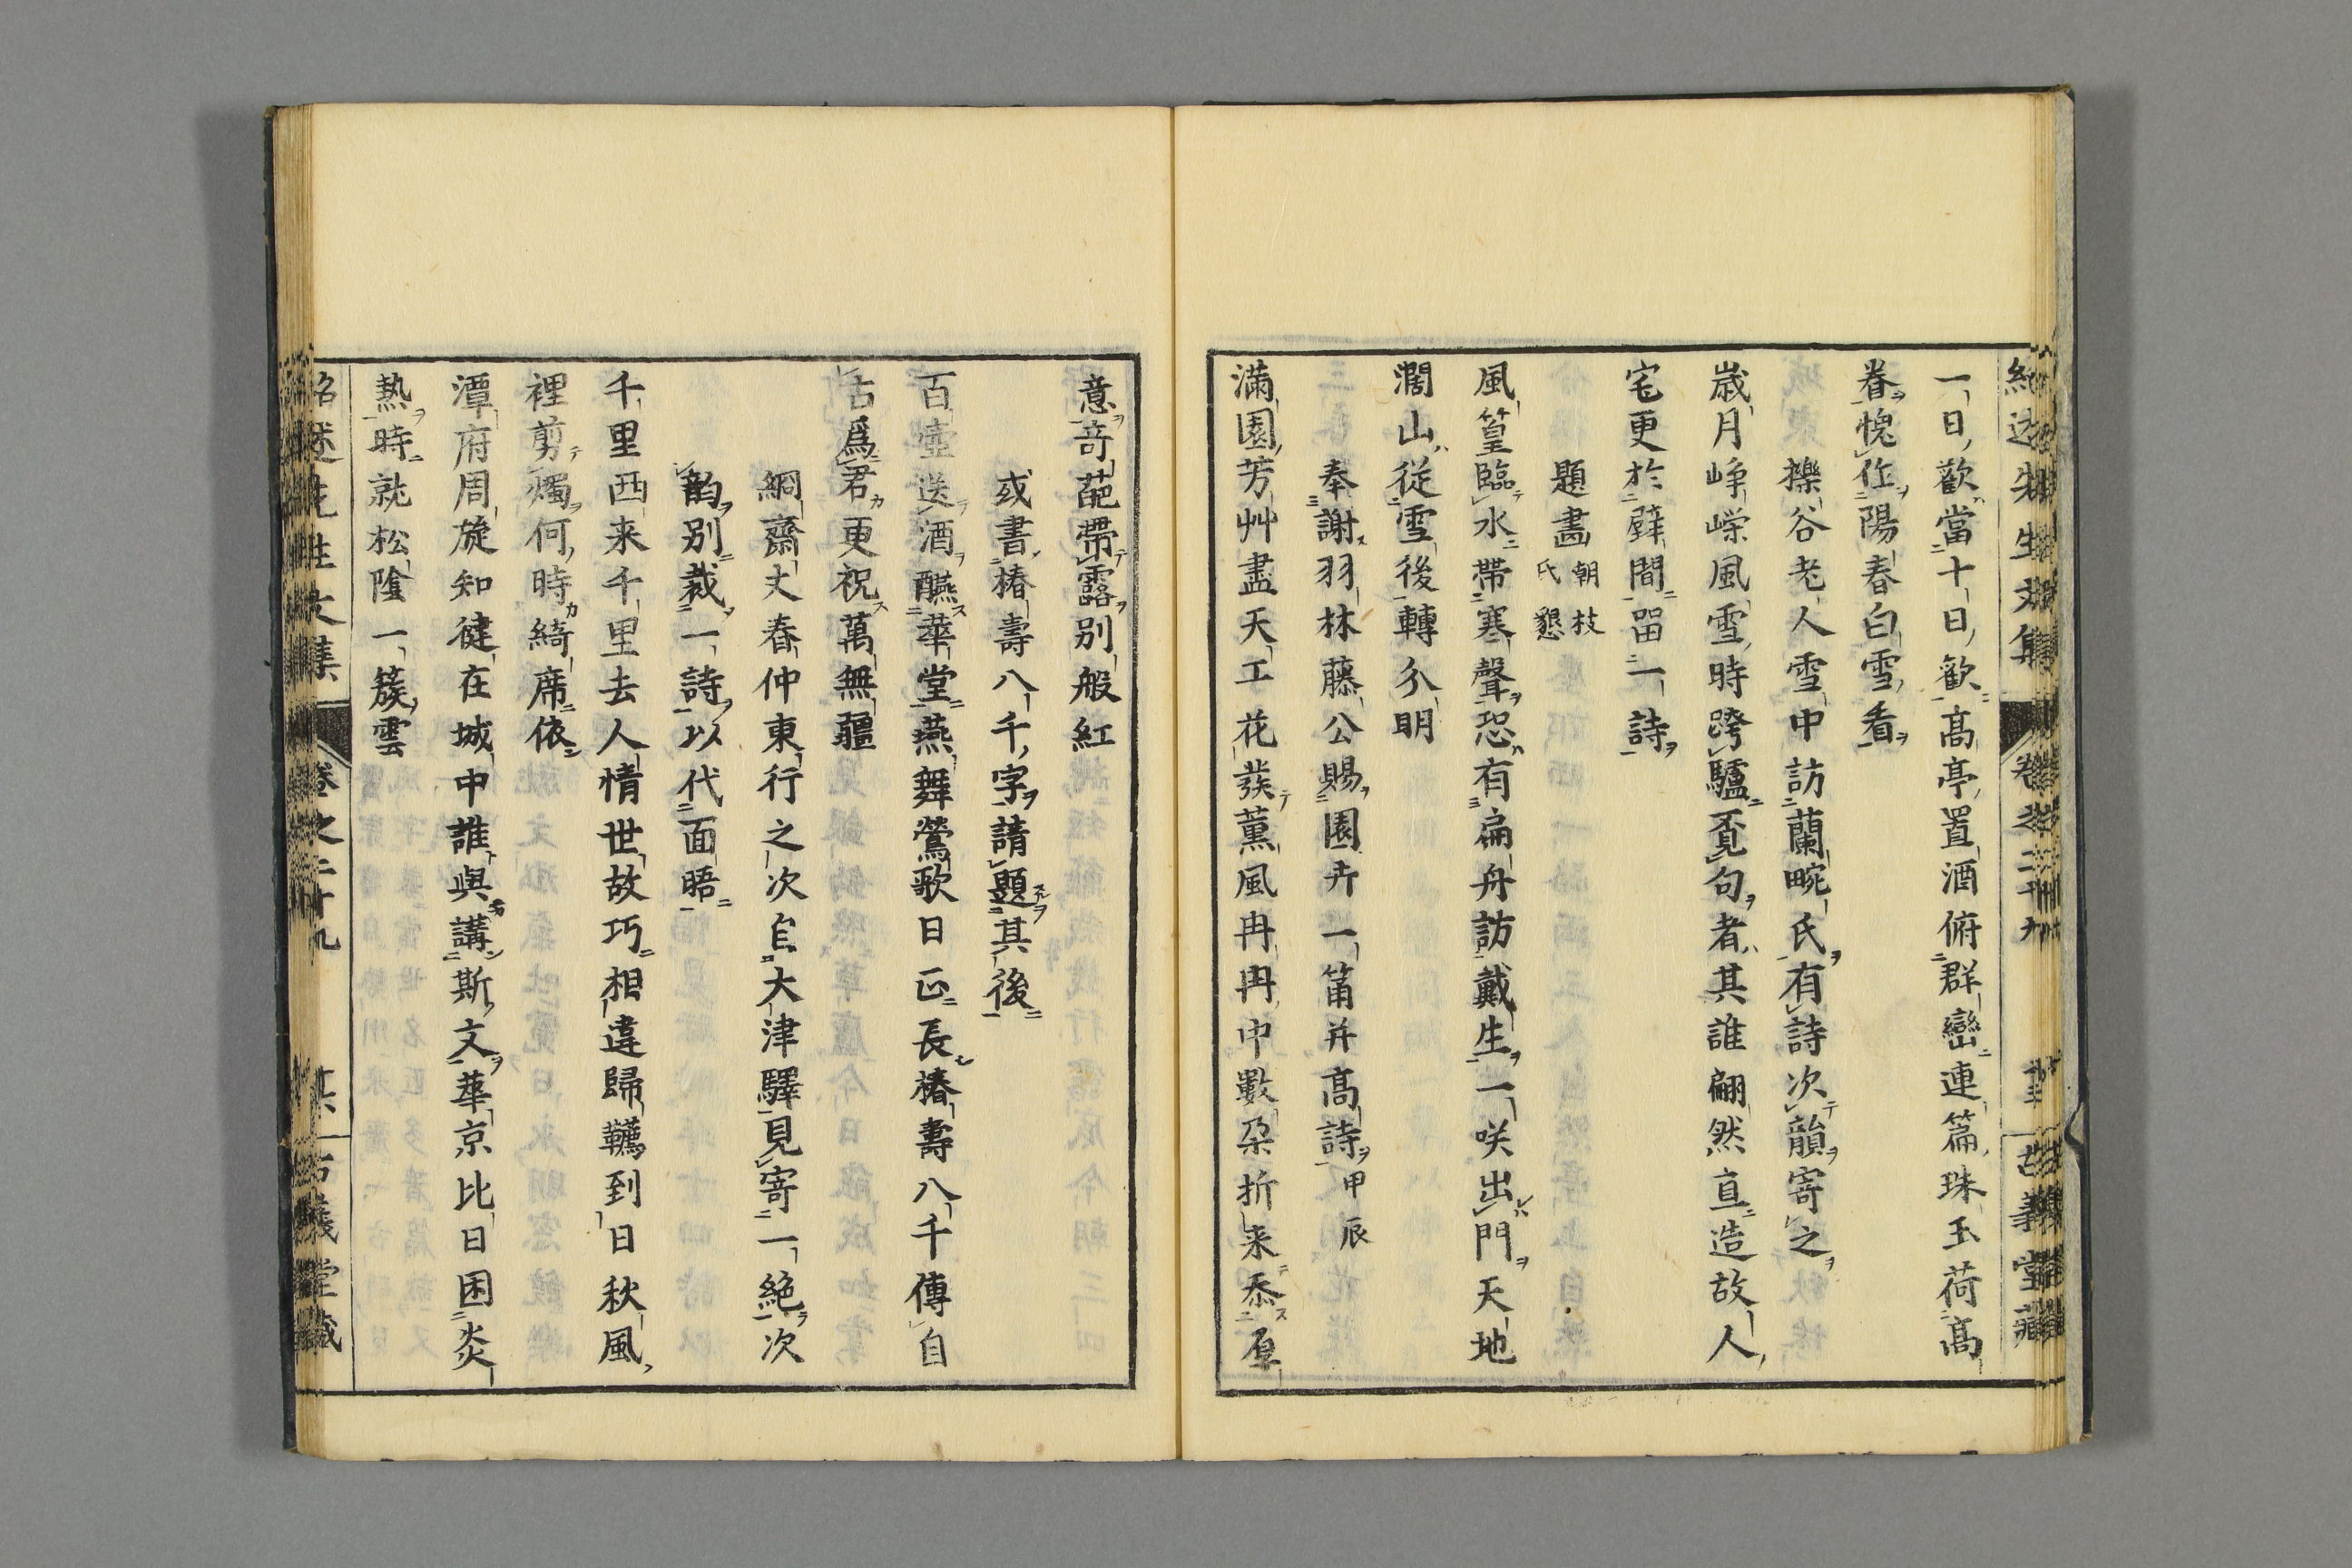 紹述先生文集 卷之二十九 古義堂藏
一日歡當十日歡高亭置酒俯群巒連篇珠玉荷高
眷愧作陽春白雪看
櫟谷老人雪中訪蘭畹氏有詩次韻寄之
歲月崢嶸風雪時跨驢覔句者其誰翩然直造故人
宅更於壁間畱一詩
題畵朝枝氏懇
風篁臨水帶寒聲恐有扁舟訪戴生一咲出門天地
濶山從雪後轉分明
奉謝羽林藤公賜園卉一筩并高詩甲辰
滿園芳艸盡天工花蕟薰風冉冉中數朶折来忝厚
意奇葩帶露別般紅
或書椿壽八千字請題其後
百壺送酒醼華堂燕舞鶯歌日正長椿壽八千傳自
古爲君更祝萬無疆
絅齋丈春仲東行之次自大津驛見寄一絶次
韵別裁一詩以代面晤
千里西来千里去人情世故巧相違歸韉到日秋風
裡剪燭何時綺席依
潭府周旋知健在城中誰與講斯文華京比日困炎
熱時就松陰一簇雲
紹述先生文集 卷之二十九 古義堂藏